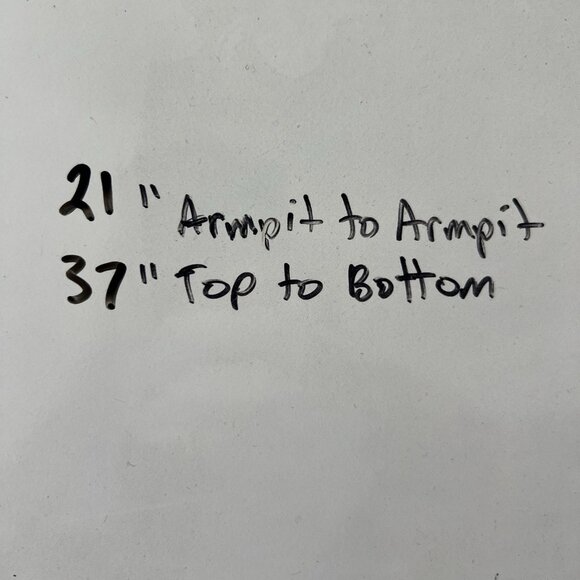 21" Armpit to Armpit
37" Top to Bottom